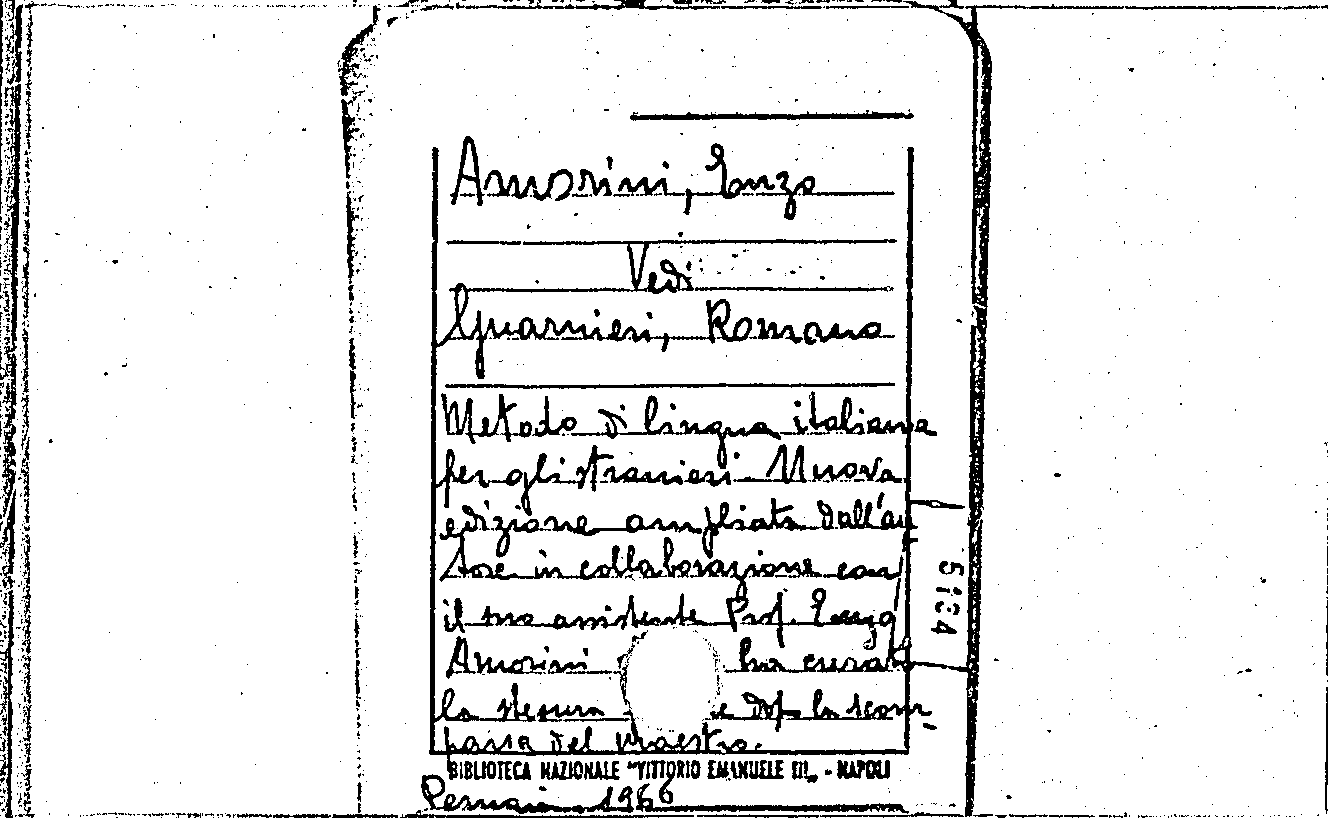 Amorini, Enzo
Vedi
Guarnieri, Romano
Metodo di lingua italiana
per gli stranieri. Nuova
edizione ampliata dall'au
tore in collaborazione con
il suo assistente Prof. Enzo
Amorini ha curato
la stesura dop. la scom
parsa del maestro.
BIBLIOTECA NAZIONALE "VITTORIO EMANUELE III" - NAPOLI
1966
5134